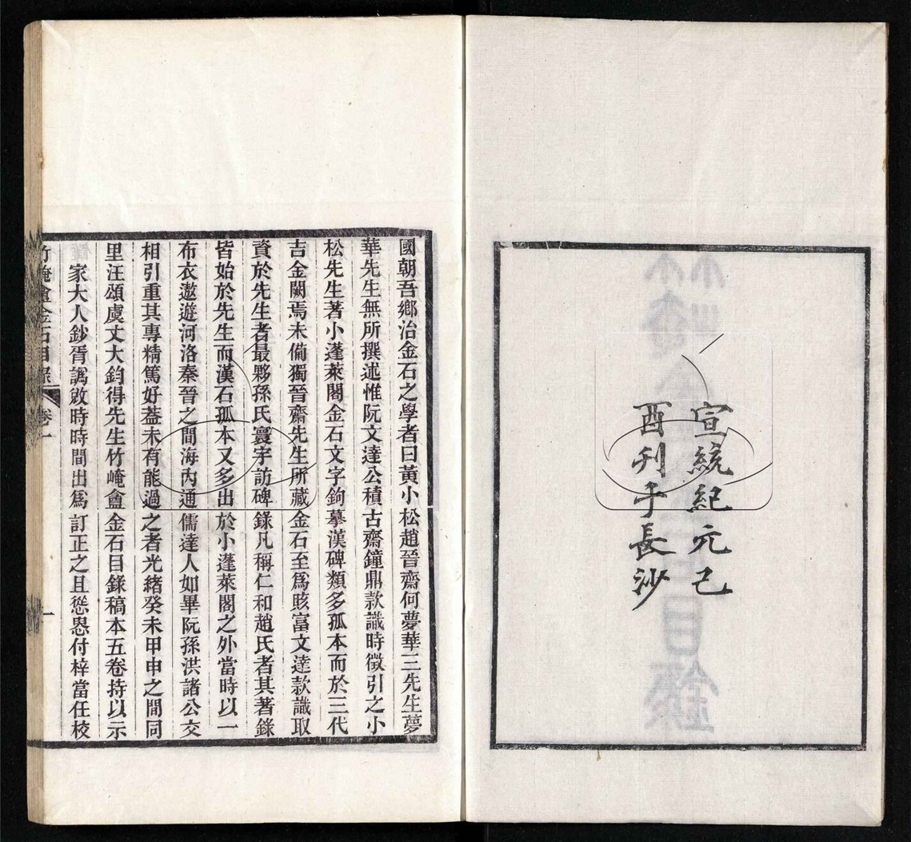 宣統紀元己
酉刋于長沙
國朝吾鄉治金石之學者曰黃小松趙晉齋何夢華三先生夢
華先生無所撰述惟阮文達公積古齋鐘鼎款識時徵引之小
松先生著小蓬萊閣金石文字鉤摹漢碑類多孤本而於三代
吉金闕焉未備獨晉齋先生所藏金石至爲賅富文達款識取
資於先生者最夥孫氏寰宇訪碑錄凡稱仁和趙氏者其著錄
皆始於先生而漢石孤本又多出於小蓬萊閣之外當時以一
布衣遨遊河洛秦晉之間海內通儒達人如畢阮孫洪諸公交
相引重其專精篤好蓋未有能過之者光緒癸未甲申之間同
里汪頌虞丈大鈞得先生竹崦盦金石目錄稿本五卷持以示
家大人鈔胥譌敚時時間出爲訂正之且慫恿付梓當任校
竹崦盦金石目錄
卷一
一